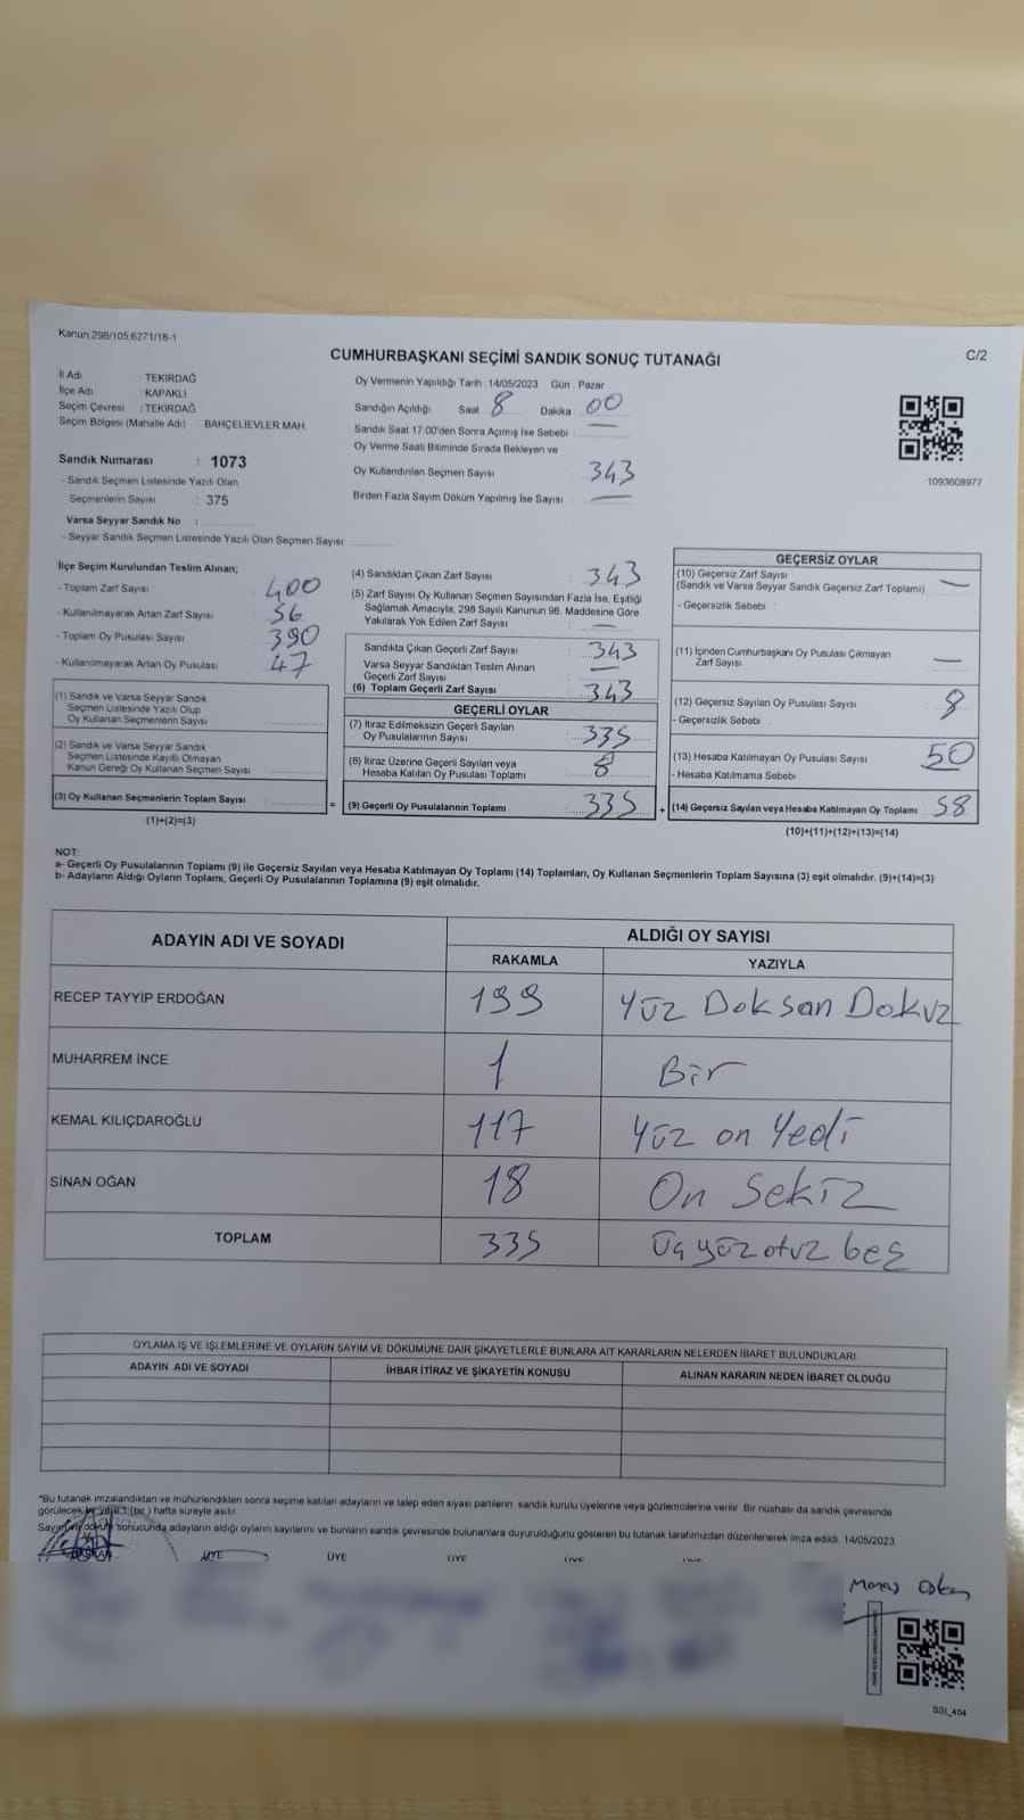 Kanun 298/105,6271/18-1
CUMHURBAŞKANI SEÇİMİ SANDIK SONUÇ TUTANAĞI
C/2
İl Adı : TEKİRDAĞ
İlçe Adı : KAPAKLI
Seçim Çevresi : TEKİRDAĞ
Seçim Bölgesi (Mahalle Adı) BAHÇELİEVLER MAH.
Sandık Numarası : 1073
- Sandık Seçmen Listesinde Yazılı Olan
Seçmenlerin Sayısı : 375
Varsa Seyyar Sandık No :
- Seyyar Sandık Seçmen Listesinde Yazılı Olan Seçmen Sayısı
Oy Vermenin Yapıldığı Tarih : 14/05/2023 Gün : Pazar
Sandığın Açıldığı Saat 8 Dakika 00
Sandık Saat 17:00'den Sonra Açılmış İse Sebebi
Oy Verme Saati Bitiminde Sırada Bekleyen ve
Oy Kullandırılan Seçmen Sayısı 343
Birden Fazla Sayım Döküm Yapılmış İse Sayısı —
1093608977
İlçe Seçim Kurulundan Teslim Alınan;
- Toplam Zarf Sayısı 400
- Kullanılmayarak Artan Zarf Sayısı 56
- Toplam Oy Pusulası Sayısı 390
- Kullanılmayarak Artan Oy Pusulası 47
(1) Sandık ve Varsa Seyyar Sandık
Seçmen Listesinde Yazılı Olup
Oy Kullanan Seçmenlerin Sayısı
(2) Sandık ve Varsa Seyyar Sandık
Seçmen Listesinde Kayıtlı Olmayan
Kanun Gereği Oy Kullanan Seçmen Sayısı
(3) Oy Kullanan Seçmenlerin Toplam Sayısı =
(1)+(2)=(3)
(4) Sandıktan Çıkan Zarf Sayısı 343
(5) Zarf Sayısı Oy Kullanan Seçmen Sayısından Fazla İse, Eşitliği
Sağlamak Amacıyla, 298 Sayılı Kanunun 98. Maddesine Göre
Yakılarak Yok Edilen Zarf Sayısı —
Sandıkta Çıkan Geçerli Zarf Sayısı 343
Varsa Seyyar Sandıktan Teslim Alınan
Geçerli Zarf Sayısı —
(6) Toplam Geçerli Zarf Sayısı 343
GEÇERLİ OYLAR
(7) İtiraz Edilmeksizin Geçerli Sayılan
Oy Pusulalarının Sayısı 335
(8) İtiraz Üzerine Geçerli Sayılan veya
Hesaba Katılan Oy Pusulası Toplamı 8
(9) Geçerli Oy Pusulalarının Toplamı 335 +
GEÇERSİZ OYLAR
(10) Geçersiz Zarf Sayısı
(Sandık ve Varsa Seyyar Sandık Geçersiz Zarf Toplamı) —
- Geçersizlik Sebebi
(11) İçinden Cumhurbaşkanı Oy Pusulası Çıkmayan
Zarf Sayısı —
(12) Geçersiz Sayılan Oy Pusulası Sayısı 8
- Geçersizlik Sebebi
(13) Hesaba Katılmayan Oy Pusulası Sayısı 50
- Hesaba Katılmama Sebebi
(14) Geçersiz Sayılan veya Hesaba Katılmayan Oy Toplamı 58
(10)+(11)+(12)+(13)=(14)
NOT:
a- Geçerli Oy Pusulalarının Toplamı (9) ile Geçersiz Sayılan veya Hesaba Katılmayan Oy Toplamı (14) Toplamları, Oy Kullanan Seçmenlerin Toplam Sayısına (3) eşit olmalıdır. (9)+(14)=(3)
b- Adayların Aldığı Oyların Toplamı, Geçerli Oy Pusulalarının Toplamına (9) eşit olmalıdır.
ADAYIN ADI VE SOYADI
ALDIĞI OY SAYISI
RAKAMLA YAZIYLA
RECEP TAYYİP ERDOĞAN 199 Yüz Doksan Dokuz
MUHARREM İNCE 1 Bir
KEMAL KILIÇDAROĞLU 117 Yüz on Yedi
SİNAN OĞAN 18 On Sekiz
TOPLAM 335 Üç yüz otuz beş
OYLAMA İŞ VE İŞLEMLERİNE VE OYLARIN SAYIM VE DÖKÜMÜNE DAİR ŞİKAYETLERLE BUNLARA AİT KARARLARIN NELERDEN İBARET BULUNDUKLARI
ADAYIN ADI VE SOYADI İHBAR İTİRAZ VE ŞİKAYETİN KONUSU ALINAN KARARIN NEDEN İBARET OLDUĞU
*Bu tutanak imzalandıktan ve mühürlendikten sonra seçime katılan adayların ve talep eden siyasi partilerin sandık kurulu üyelerine veya gözlemcilerine verilir. Bir nüshası da sandık çevresinde
görülecek bir yere 1 (bir) hafta süreyle asılır.
Sayım ve döküm sonucunda adayların aldığı oyların sayılarını ve bunların sandık çevresinde bulunanlara duyurulduğunu gösteren bu tutanak tarafımızdan düzenlenerek imza edildi. 14/05/2023
BAŞKAN ÜYE ÜYE ÜYE ÜYE